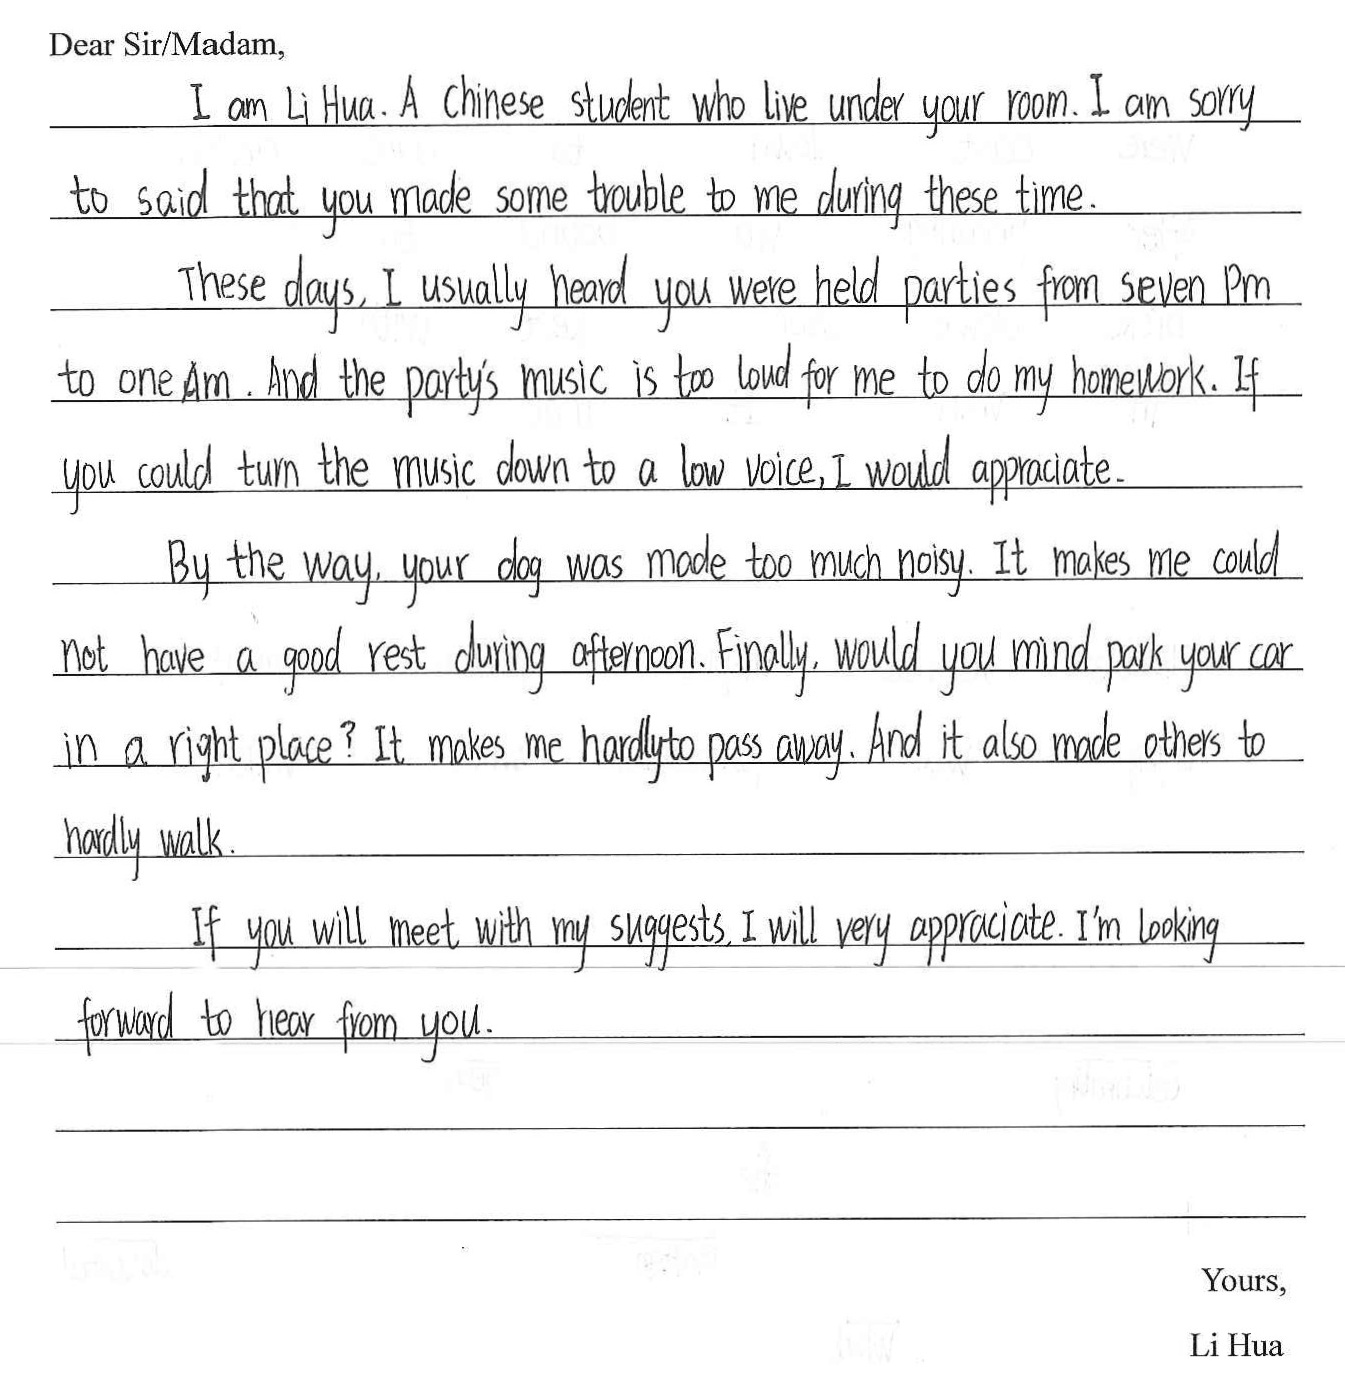 Dear Sir/Madam,
I am Li Hua. A Chinese student who live under your room. I am sorry
to said that you made some trouble to me during these time.
These days, I usually heard you were held parties from seven Pm
to one Am. And the party's music is too loud for me to do my homework. If
you could turn the music down to a low voice, I would appraciate.
By the way, your dog was made too much noisy. It makes me could
not have a good rest during afternoon. Finally, would you mind park your car
in a right place? It makes me hardly to pass away. And it also made others to
hardly walk.
If you will meet with my suggests, I will very appraciate. I'm looking
forward to hear from you.
Yours,
Li Hua